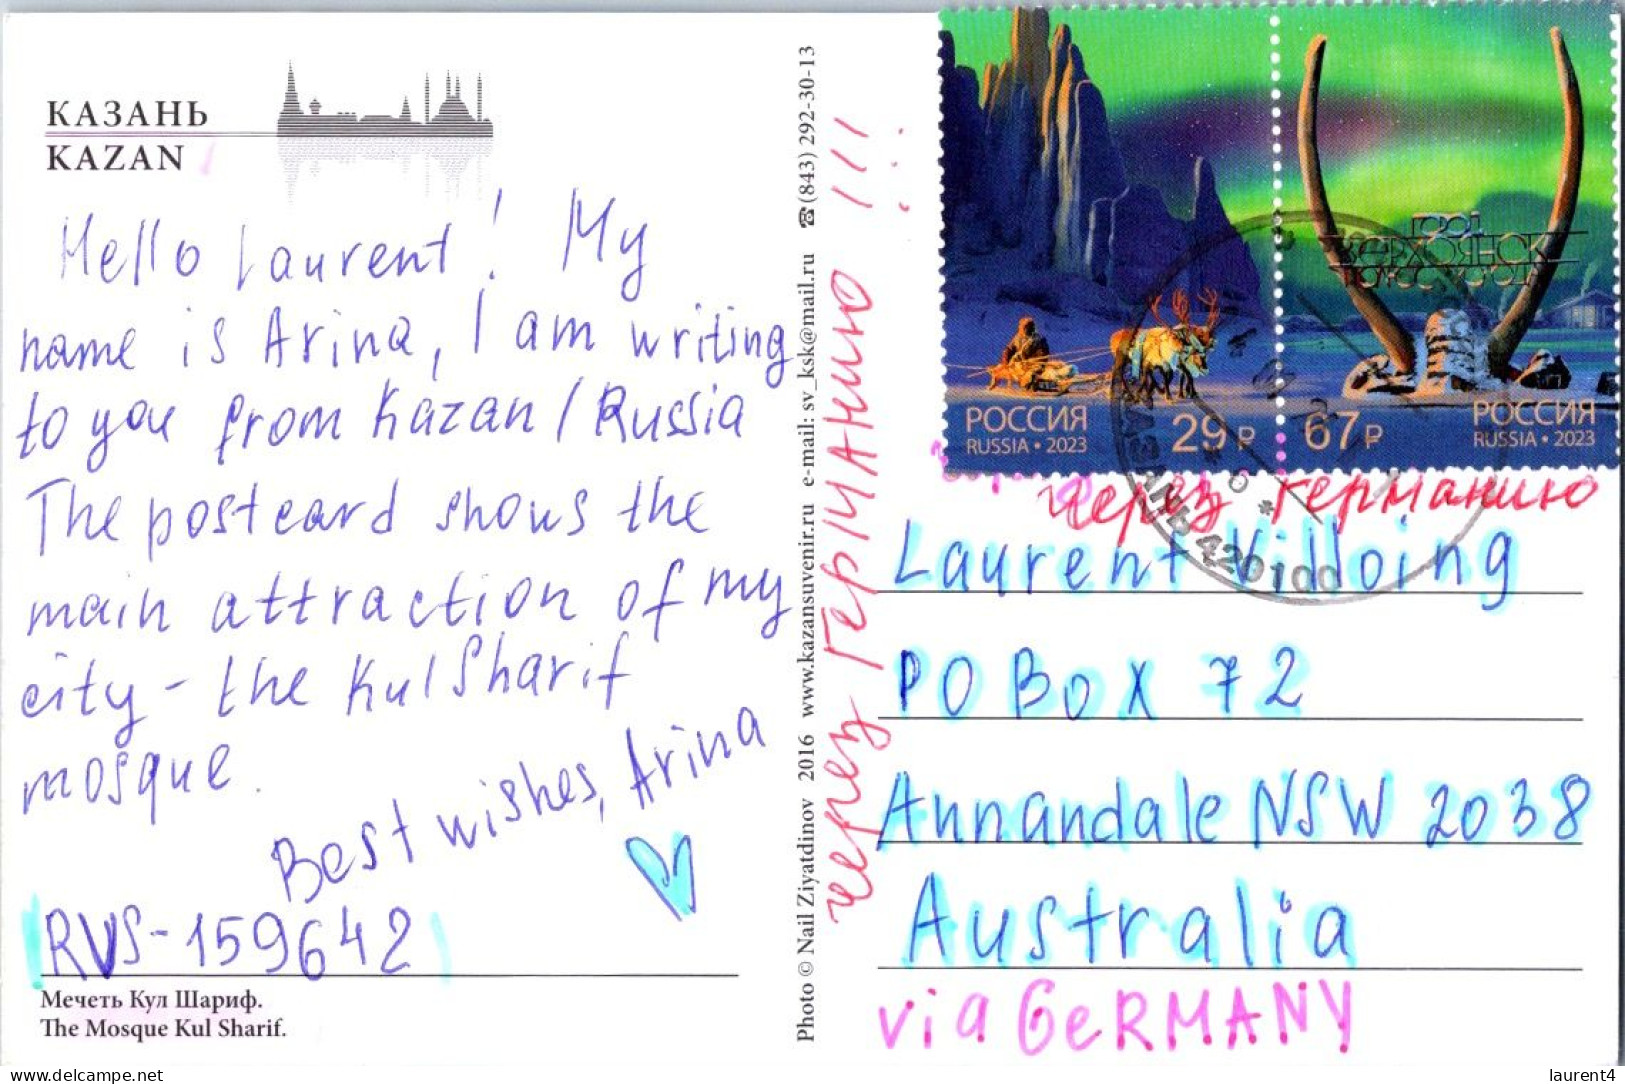 КАЗАНЬ
KAZAN
Hello Laurent! My
name is Arina, I am writing
to you from Kazan/Russia
The postcard shows the
main attraction of my
city - the Kul Sharif
mosque.
Best wishes, Arina
RUS-159642
Мечеть Кул Шариф.
The Mosque Kul Sharif.
Photo © Nail Ziyatdinov 2016 www.kazansuvenir.ru e-mail: sv_ksk@mail.ru ☎(843) 292-30-13
через Германию !!!
РОССИЯ
RUSSIA • 2023
29 ₽
ГОРОД
ВЕРХОЯНСК
ПОЛЮС ХОЛОДА
67 ₽
РОССИЯ
RUSSIA • 2023
420100
через Германию
Laurent Villoing
PO Box 72
Annandale NSW 2038
Australia
via GeRMANY
www.delcampe.net
laurent4